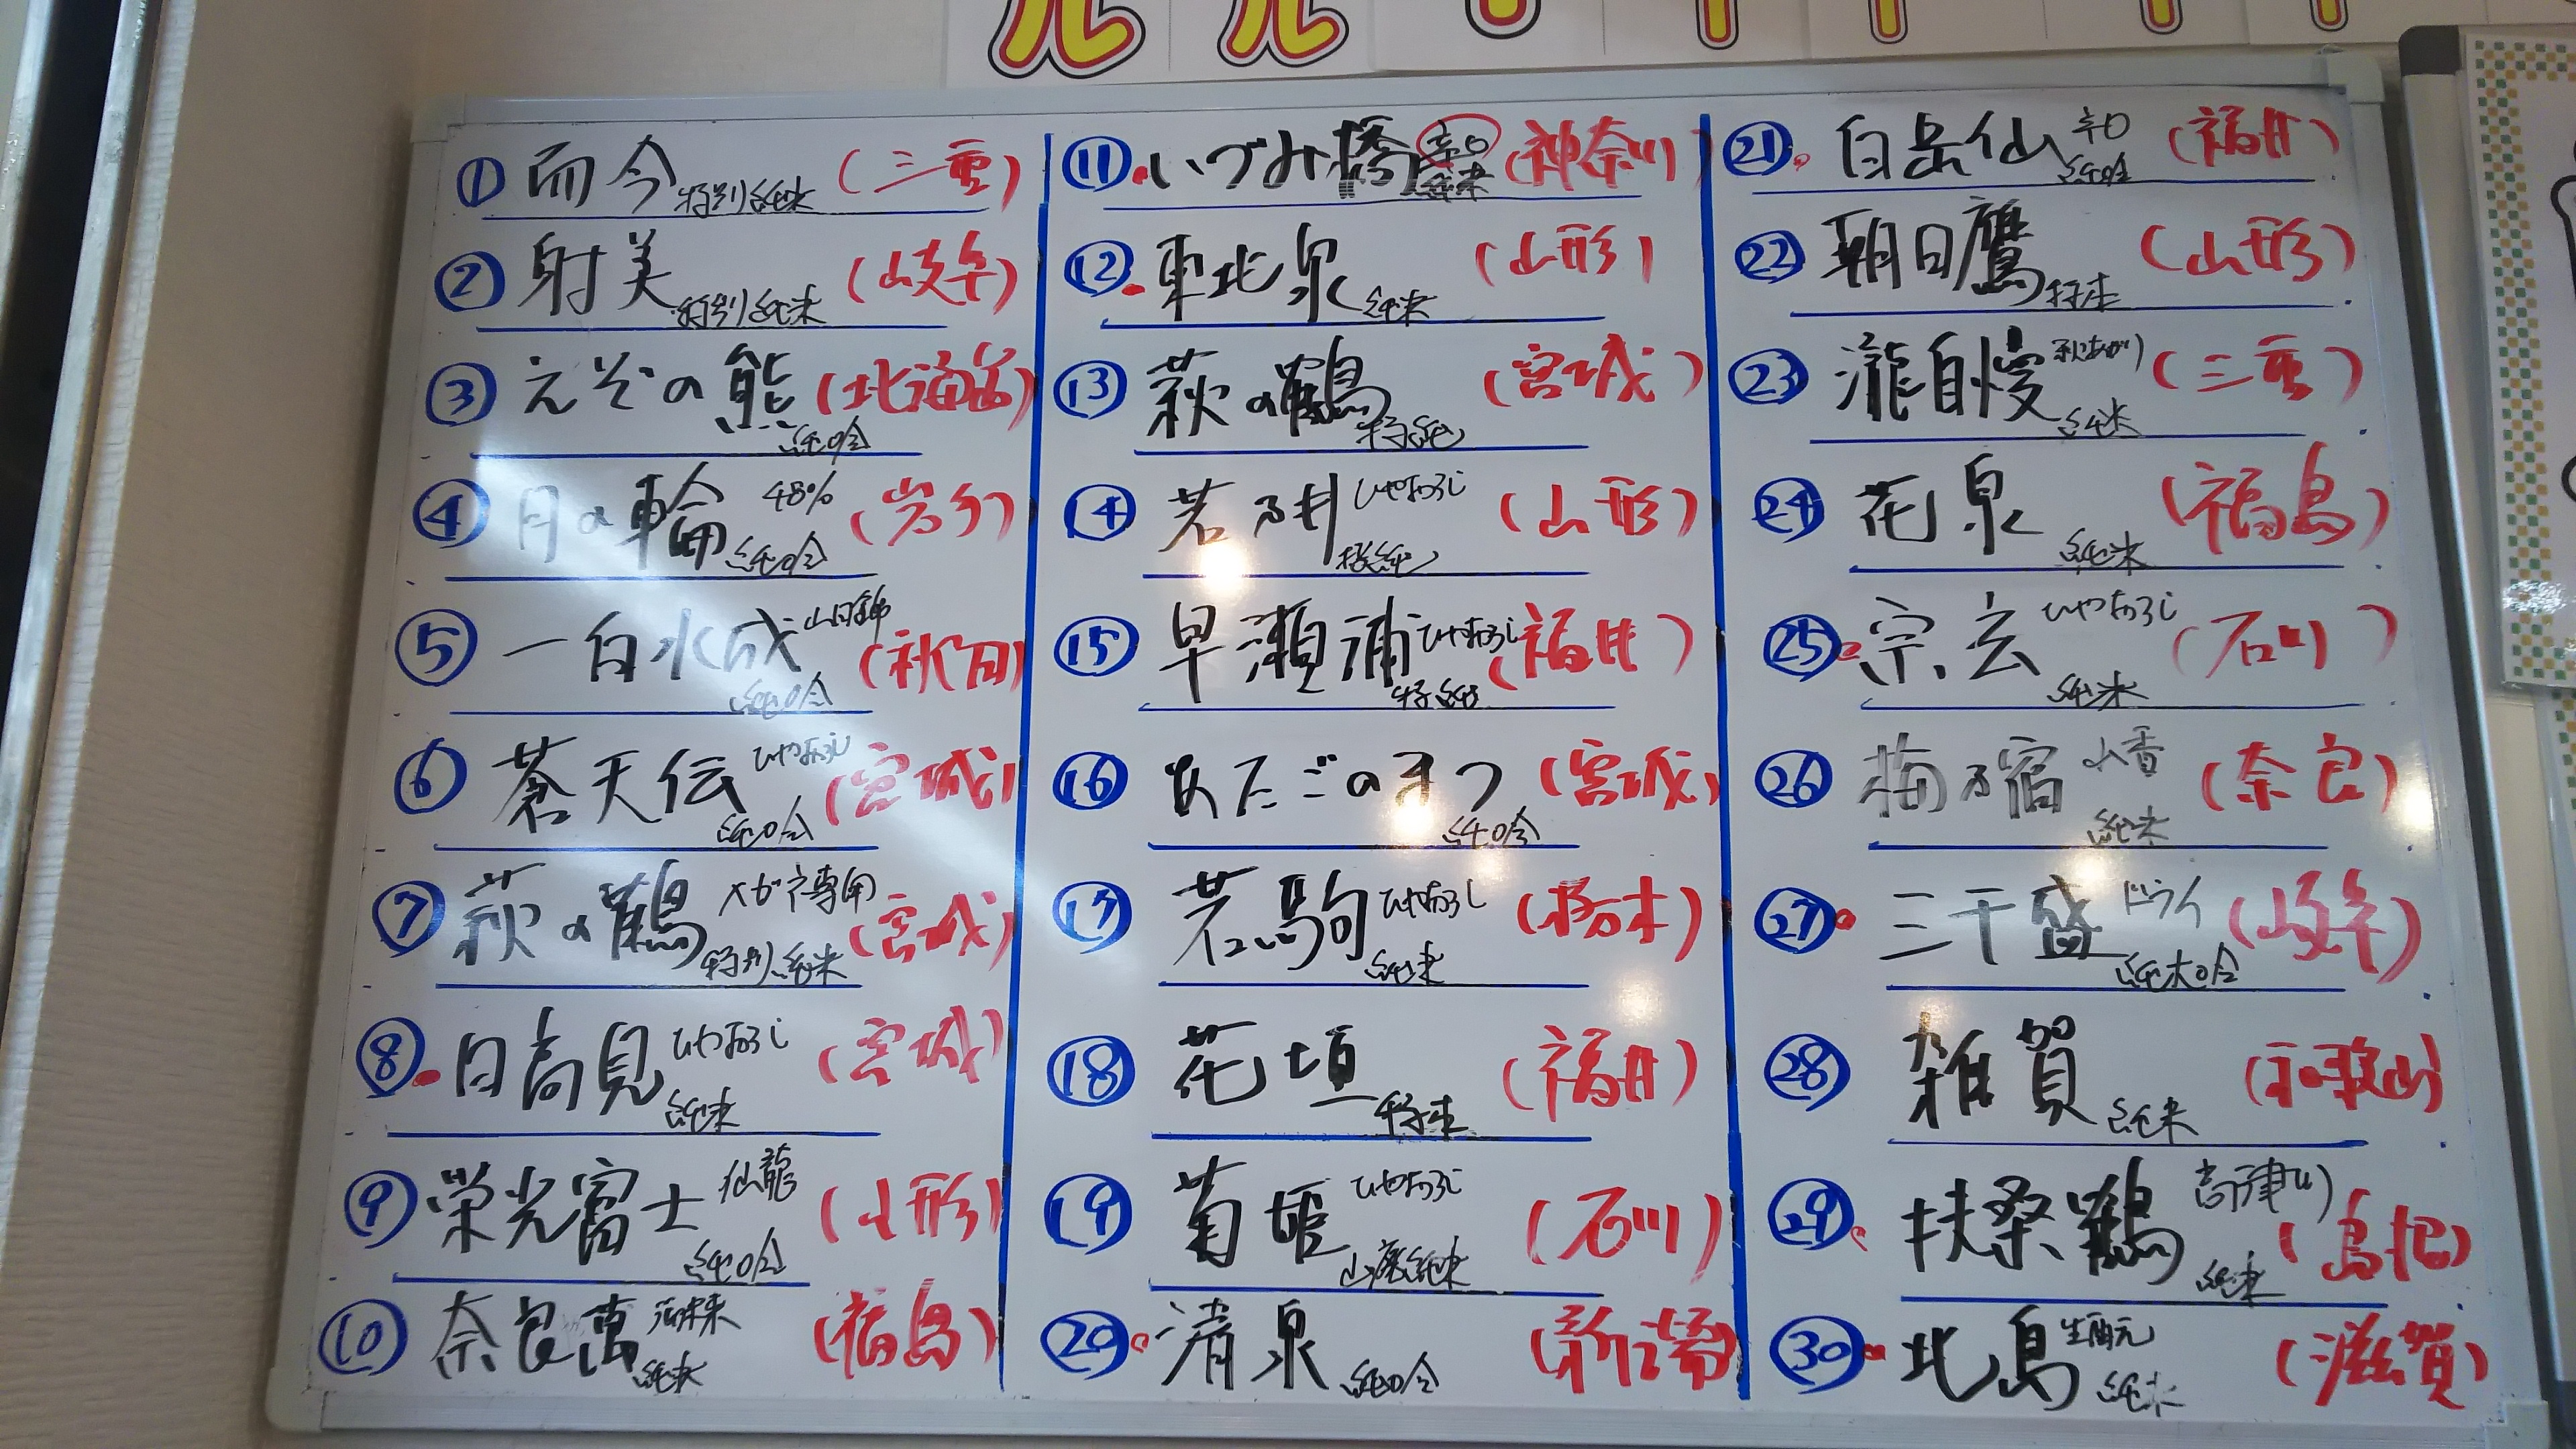 ① 而今 特別純米 (三重)
② 射美 特別純米 (岐阜)
③ えぞの熊 純吟 (北海道)
④ 月の輪 48% 純吟 (岩手)
⑤ 一白水成 山田錦 純吟 (秋田)
⑥ 蒼天伝 ひやおろし 純吟 (宮城)
⑦ 萩の鶴 メガネ専用 特別純米 (宮城)
⑧ 日高見 ひやおろし 純米 (宮城)
⑨ 榮光冨士 仙龍 純吟 (山形)
⑩ 奈良萬 純米 (福島)
⑪ いづみ橋 辛口 純米 (神奈川)
⑫ 東北泉 純米 (山形)
⑬ 萩の鶴 特純 (宮城)
⑭ 若乃井 ひやおろし 特純 (山形)
⑮ 早瀬浦 ひやおろし 特純 (福井)
⑯ あたごのまつ 純吟 (宮城)
⑰ 若駒 ひやおろし 純米 (栃木)
⑱ 花垣 特本 (福井)
⑲ 菊姫 ひやおろし 山廃純米 (石川)
⑳ 清泉 純吟 (新潟)
㉑ 白岳仙 辛口 純吟 (福井)
㉒ 朝日鷹 特本 (山形)
㉓ 瀧自慢 秋あがり 純米 (三重)
㉔ 花泉 純米 (福島)
㉕ 宗玄 ひやおろし 純米 (石川)
㉖ 梅乃宿 山香 純米 (奈良)
㉗ 三千盛 ドライ 純大吟 (岐阜)
㉘ 雑賀 純米 (和歌山)
㉙ 扶桑鶴 高津川 純米 (島根)
㉚ 北島 生酛 純米 (滋賀)